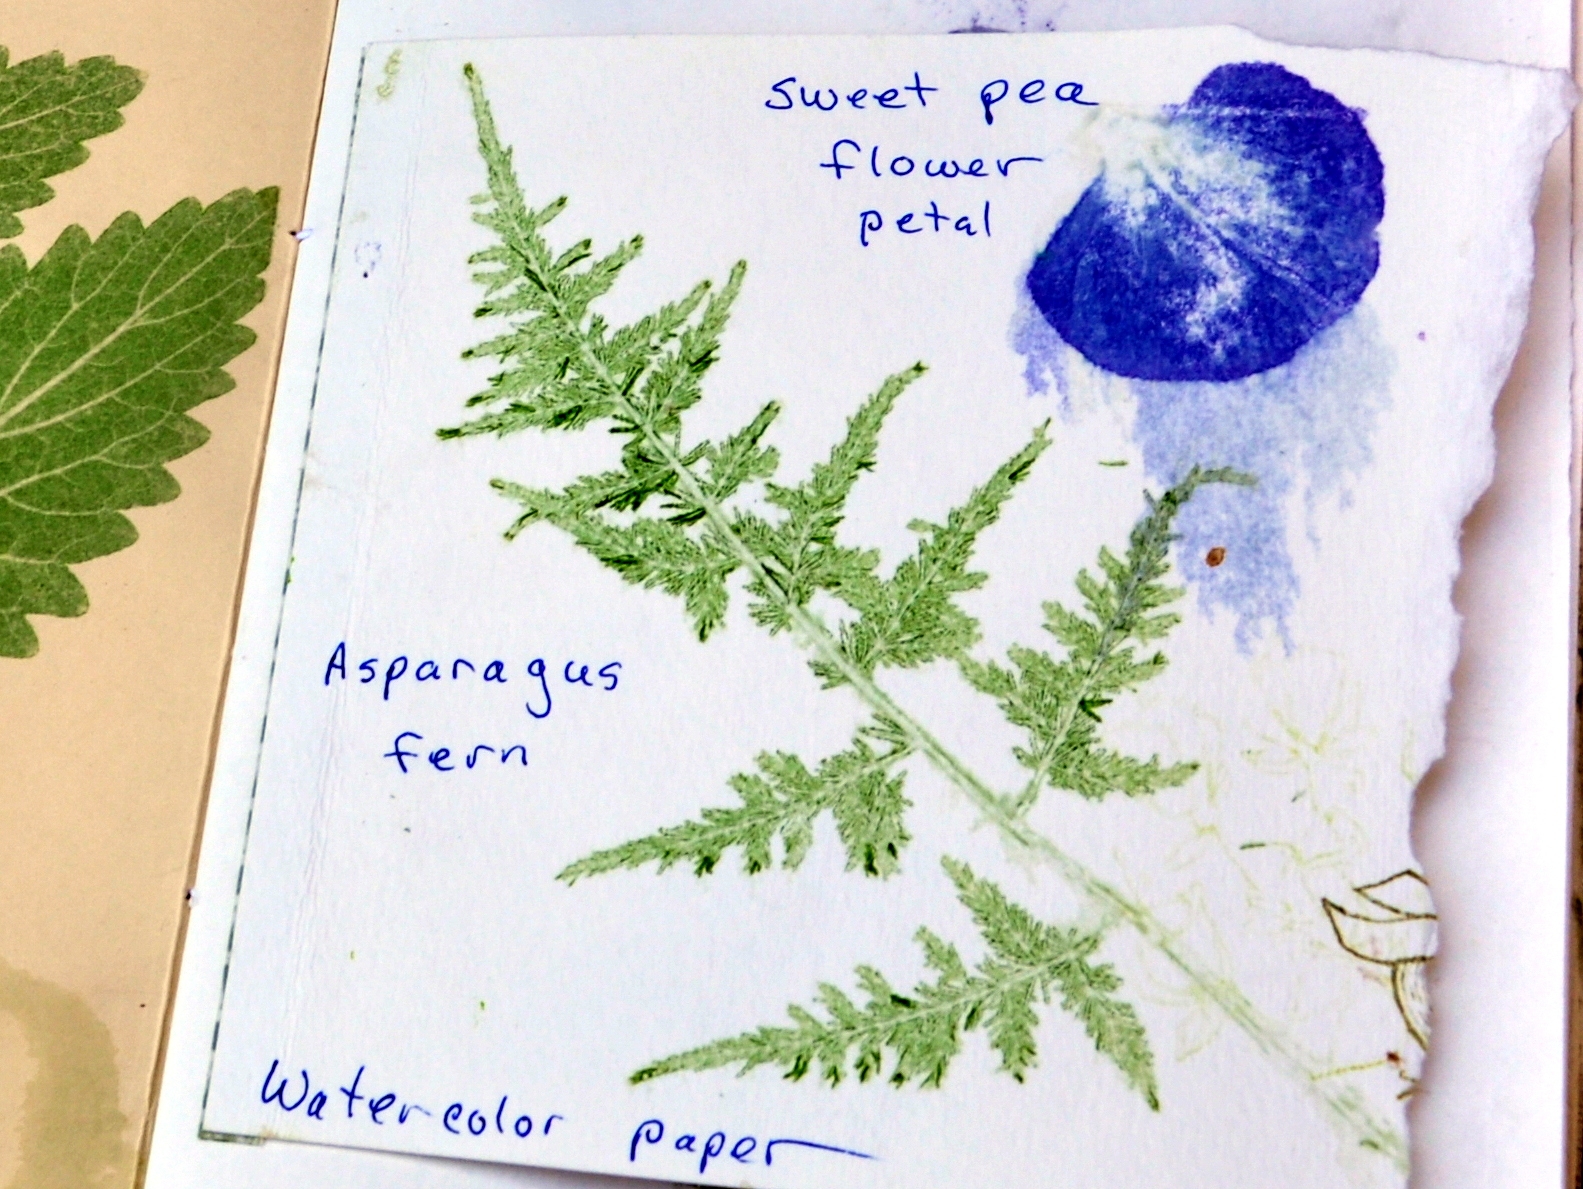 sweet pea
flower
petal
Asparagus
fern
Watercolor paper